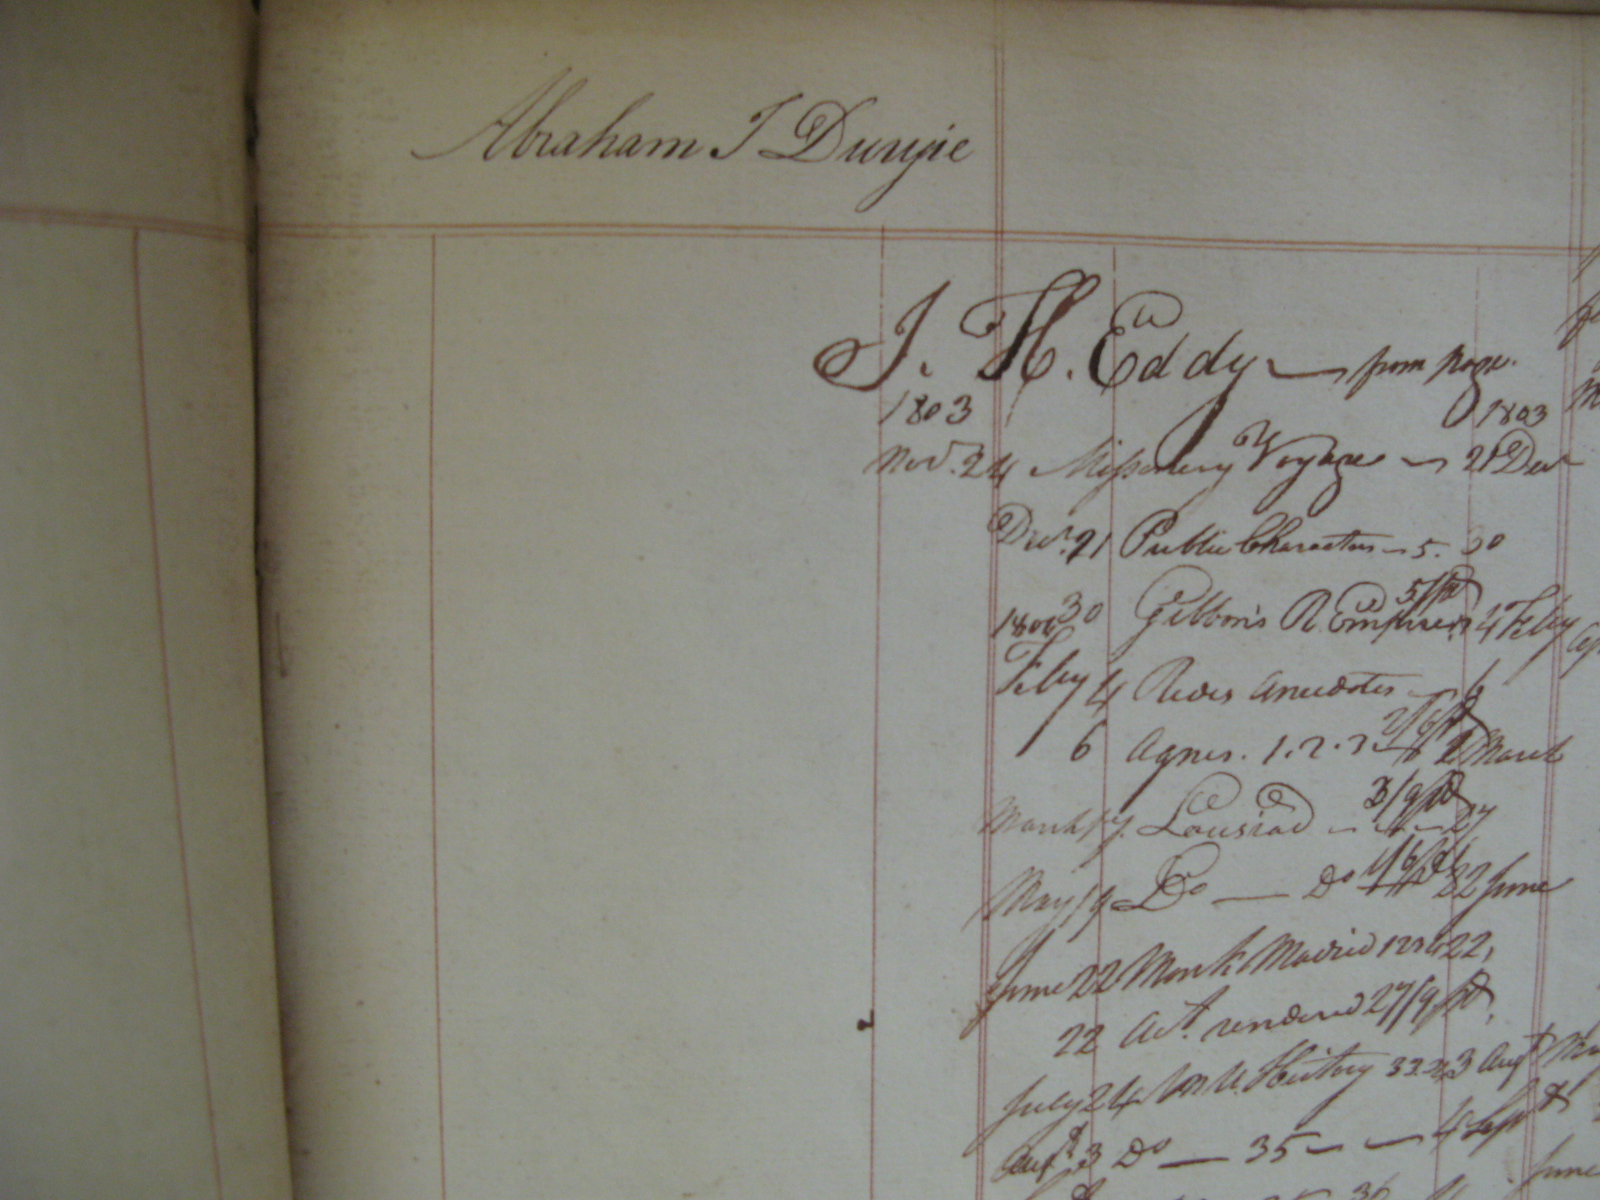 Abraham I Duryie
J. H. Eddy — from page
1803 1803
Nov. 24 Missionary Voyage — 21 Decr
Decr. 21 Public Characters — 5. 30
30 Gibbon's R. Empire 4 Feby
1804
Feby 4 Anecdotes
6 Agnes. 1. 2. 3 2/6 pd 2 March
March 17. Lousiad — 3/9 pd 27
May 19 Do — Do 22 June
June 22 Monk Madrid 22,
22 Act. rendered 27/9 pd,
July 24 Un. History 33. 3 Augt
Augt. 3 Do — 35 — 4 Sept
June